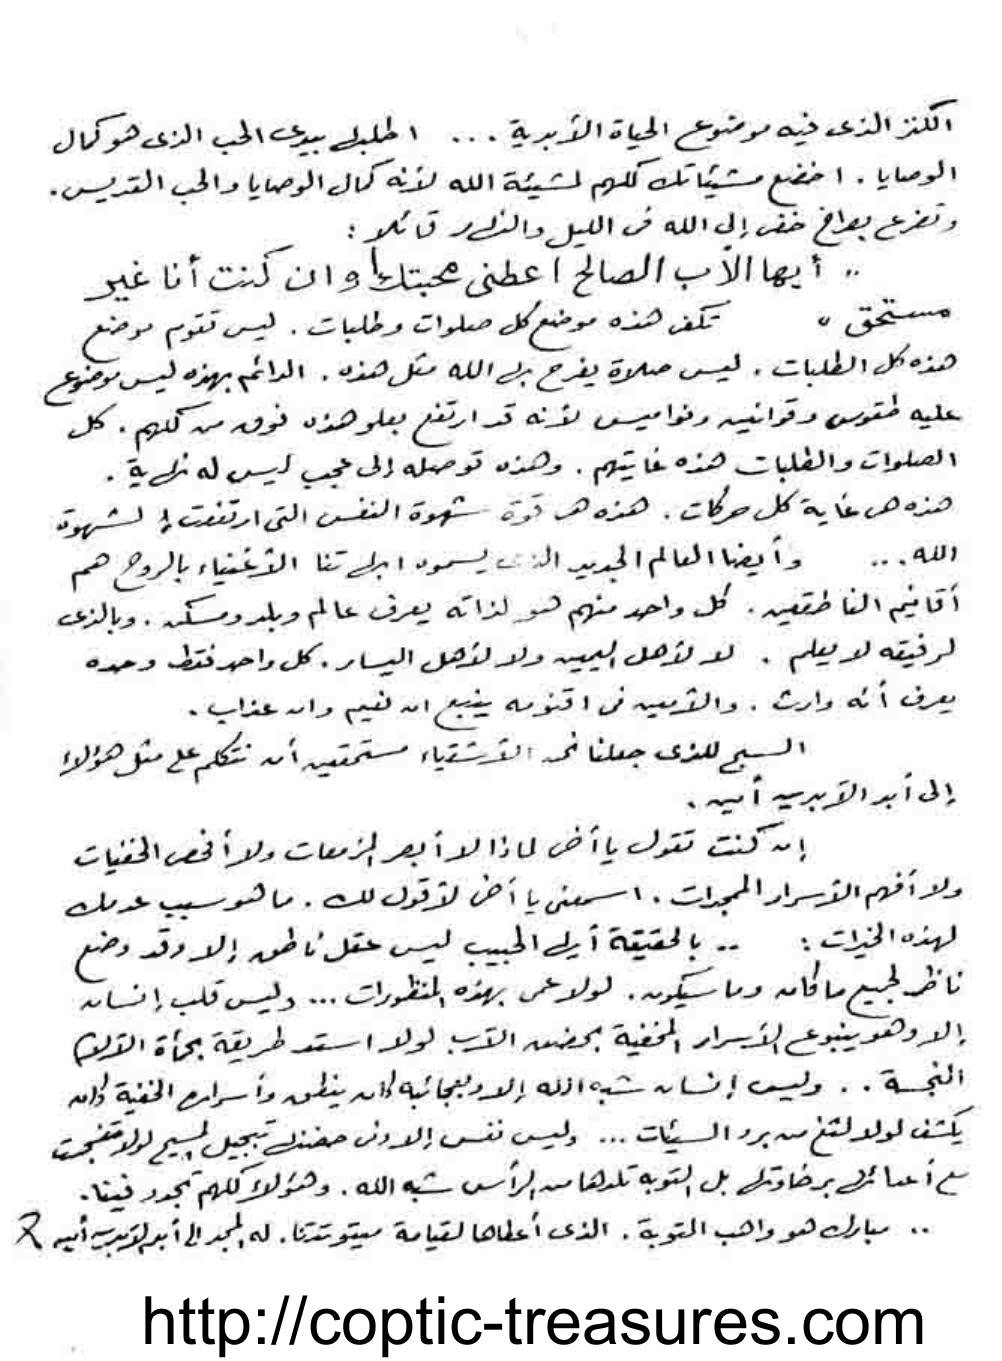 الكنز الذى فيه موضوع الحياة الأبدية ... اطلب بيدى الحب الذى هو كمال
الوصايا . اخضع مشيئاتك كلهم لمشيئة الله لأنه كمال الوصايا والحب القديس .
وتضرع بصراخ خفى إلى الله فى الليل والنهار قائلا :
" أيها الآب الصالح اعطنى محبتك وان كنت أنا غير
مستحق " تكف هذه موضع كل صلوات وطلبات . ليس تقوم موضع
هذه كل الطلبات . ليس صلاة يفرح بها الله مثل هذه . الدائم بهذه ليس موضوع
عليه طقوس وقوانين ونواميس لأنه قد ارتفع بعلو هذه فوق من كلهم . كل
الصلوات والطلبات هذه غايتهم . وهذه توصله إلى عجب ليس له نهاية .
هذه هى غاية كل حركات . هذه هى قوة شهوة النفس التى ارتفعت إلى شهوة
الله ... وأيضا العالم الجديد الذى يسموه ابهاتنا الأغنياء بالروح هم
أقانيم الناطقين . كل واحد منهم هو لذاته يعرف عالم وبلد ومسكن . وبالذى
لرفيقه لا يعلم . لا لأهل اليمين ولا لأهل اليسار . كل واحد فقط وحده
يعرف أنه وارث . والأمين فى اقنومه ينبع ان نعيم وان عذاب .
السبح للذى جعلنا نحن الأشقياء مستحقين أن نتكلم على مثل هؤلاء
إلى أبد الآبدين أمين .
إن كنت تقول يا أخى لماذا لا أبصر المزمعات ولا أفحص الخفيات
ولا أفهم الأسرار الممجدات . اسمعنى يا أخى لأقول لك . ما هو سبب عدمك
لهذه الخيرات : .. بالحقيقة أيها الحبيب ليس عقل ناطق إلا وقد وضع
ناظر لجميع ما كان وما سيكون . لولا عمى بهذه المنظورات ... وليس قلب إنسان
إلا وهو ينبوع الأسرار المخفية بحضن الآب لولا استد طريقة بحمأة الآلام
النجسة .. وليس إنسان شبه الله إلا وبعجائبه كان ينطق وأسراره الخفية كان
يكشف لولا لثغ من برد السيئات ... وليس نفس إلا وفى حضنها تبجيل المسيح لولا تفججت
مع أعدائها برخاوتها بل التوبة تلدها من الرأس شبه الله . وهؤلاء كلهم تجدد فينا .
.. مبارك هو واهب التوبة . الذى أعطاها لقيامة ميتوتتنا . له المجد إلى أبد الآبدين أمين
http://coptic-treasures.com